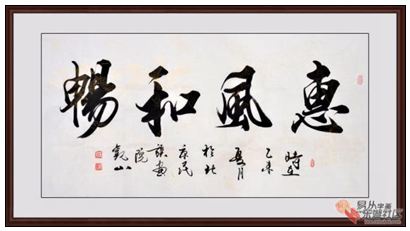 惠風和暢
時在
乙未
夏月
於北
京民
族畫
院
觀山
易从字画